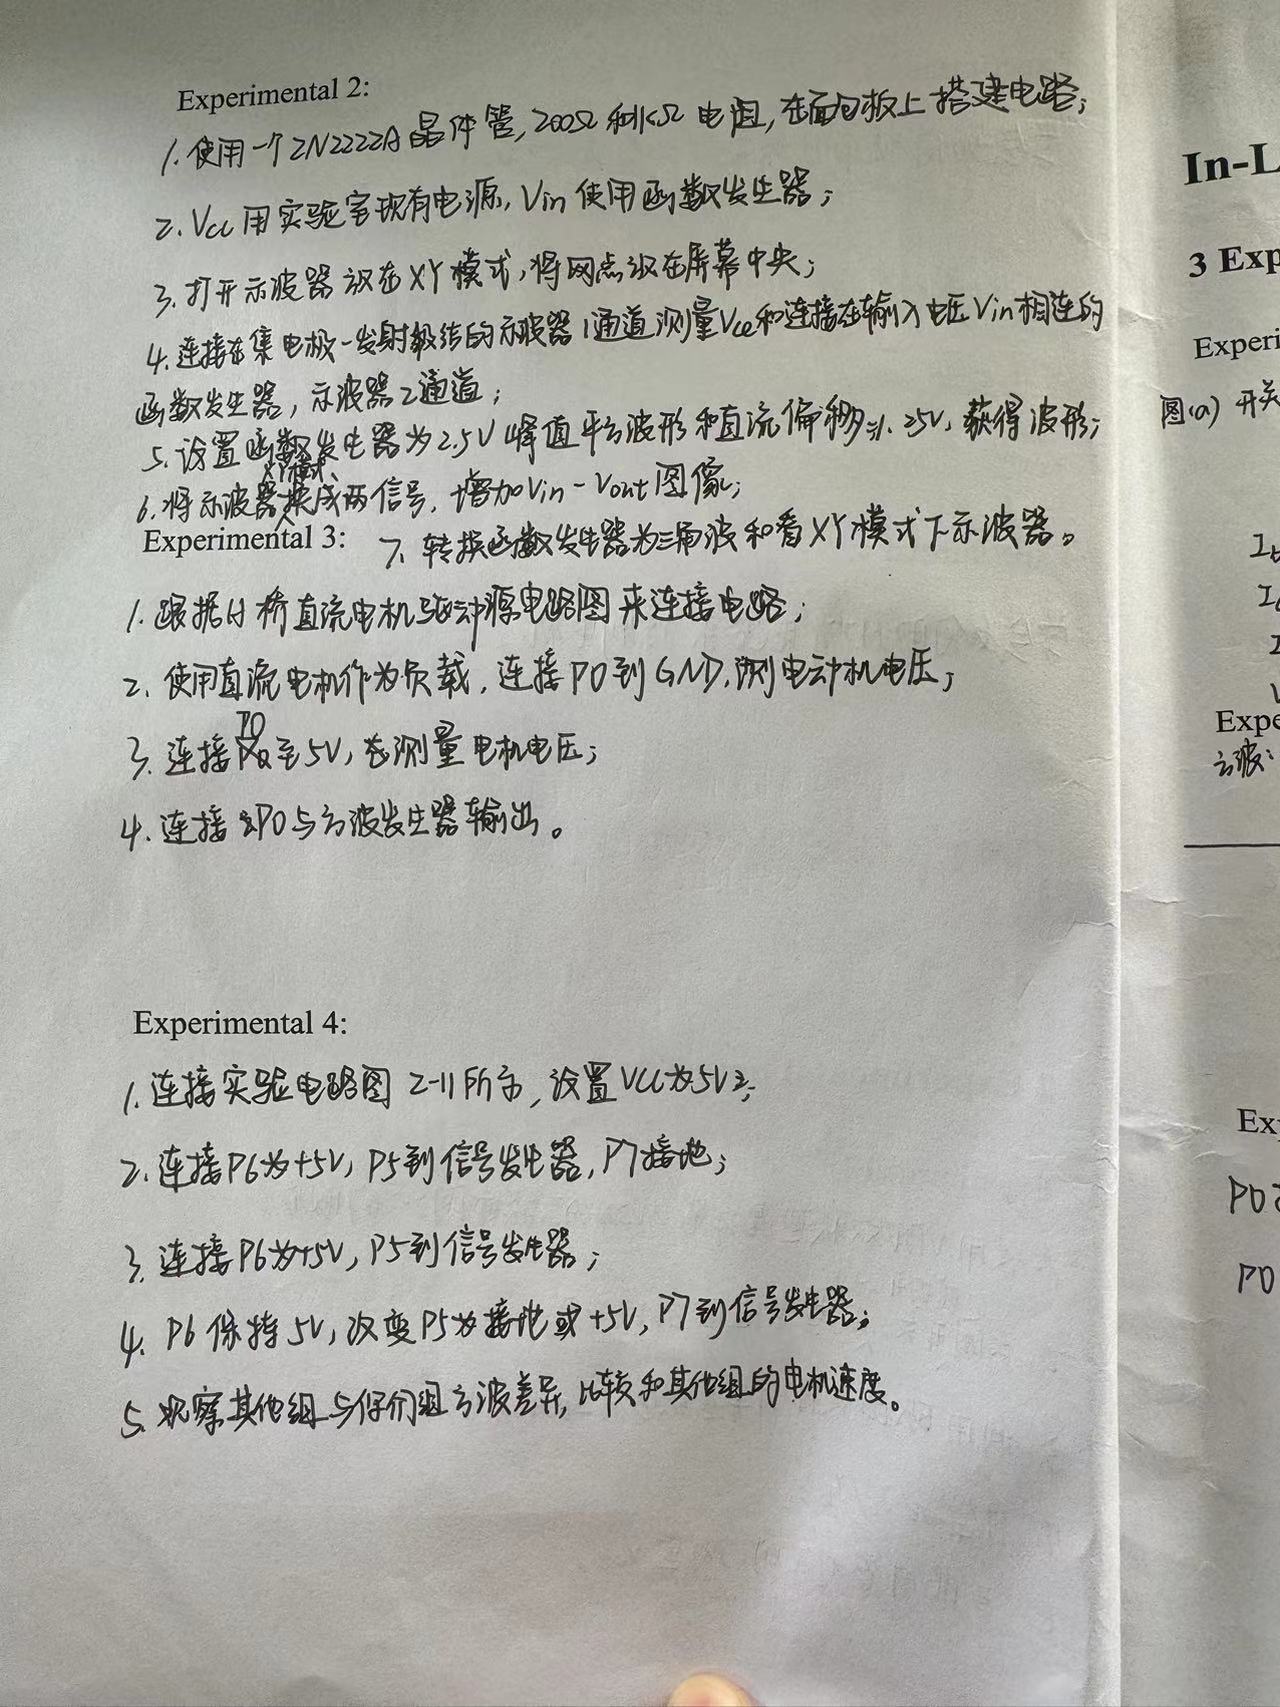 Experimental 2:
1. 使用一个2N2222A晶体管, 200Ω和1kΩ电阻, 在面包板上搭建电路;
2. Vcc用实验室现有电源, Vin使用函数发生器;
3. 打开示波器放在XY模式, 将网点放在屏幕中央;
4. 连接在集电极-发射极结的示波器1通道测量Vce和连接在输入电压Vin相连的
函数发生器, 示波器2通道;
5. 设置函数发生器为2.5V峰值平方波形和直流偏移1.25V, 获得波形;
XY模式
6. 将示波器换成两信号, 增加Vin-Vout图像;
Experimental 3: 7. 转换函数发生器为三角波和看XY模式下示波器。
1. 跟据H桥直流电机驱动源电路图来连接电路;
2. 使用直流电机作为负载, 连接P0到GND, 测电动机电压;
3. 连接P0至5V, 测量电机电压;
4. 连接P0与方波发生器输出。
Experimental 4:
1. 连接实验电路图2-11所示, 设置VCC为5V;
2. 连接P6为+5V, P5到信号发生器, P7接地;
3. 连接P6为+5V, P5到信号发生器;
4. P6保持5V, 改变P5为接地或+5V, P7到信号发生器;
5. 观察其他组与你们组方波差异, 比较和其他组的电机速度。
In-L
3 Exp
Experi
图(a) 开关
Expe
方波:
Ex
P0
P0